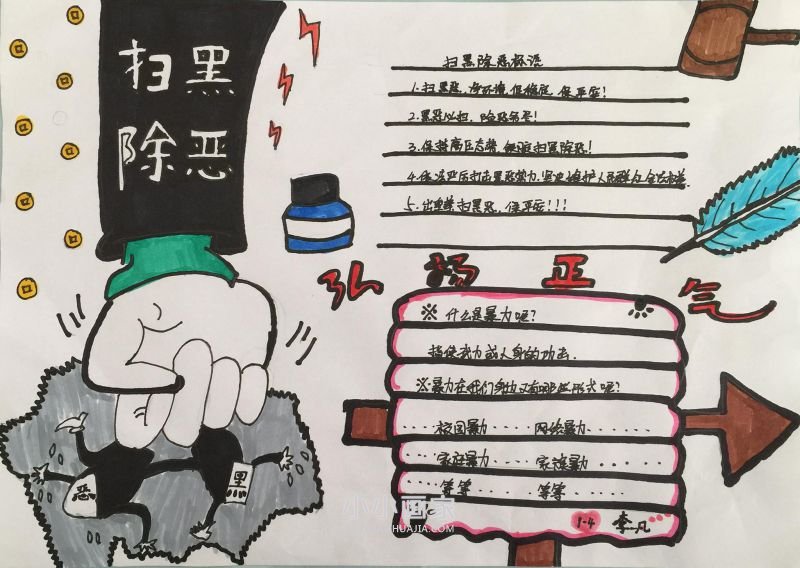 扫黑
除恶
扫黑除恶标语
1.扫黑恶,净环境,促稳定,保平安!
2.黑恶必扫,除恶务尽!
3.保持高压态势,铁腕扫黑除恶!
4.依法严厉打击黑恶势力,坚决维护人民群众
5.出重拳扫黑恶,保平安!!!
弘扬正气
※ 什么是暴力呢?
指使武力或人身的功击.
※暴力在我们身边又有哪些形式呢?
....校园暴力.....网络暴力.......
....家庭暴力.....家族暴力......
....等等......等等......
1-4 李凡
恶
黑
小小画家
HUAJIA.COM